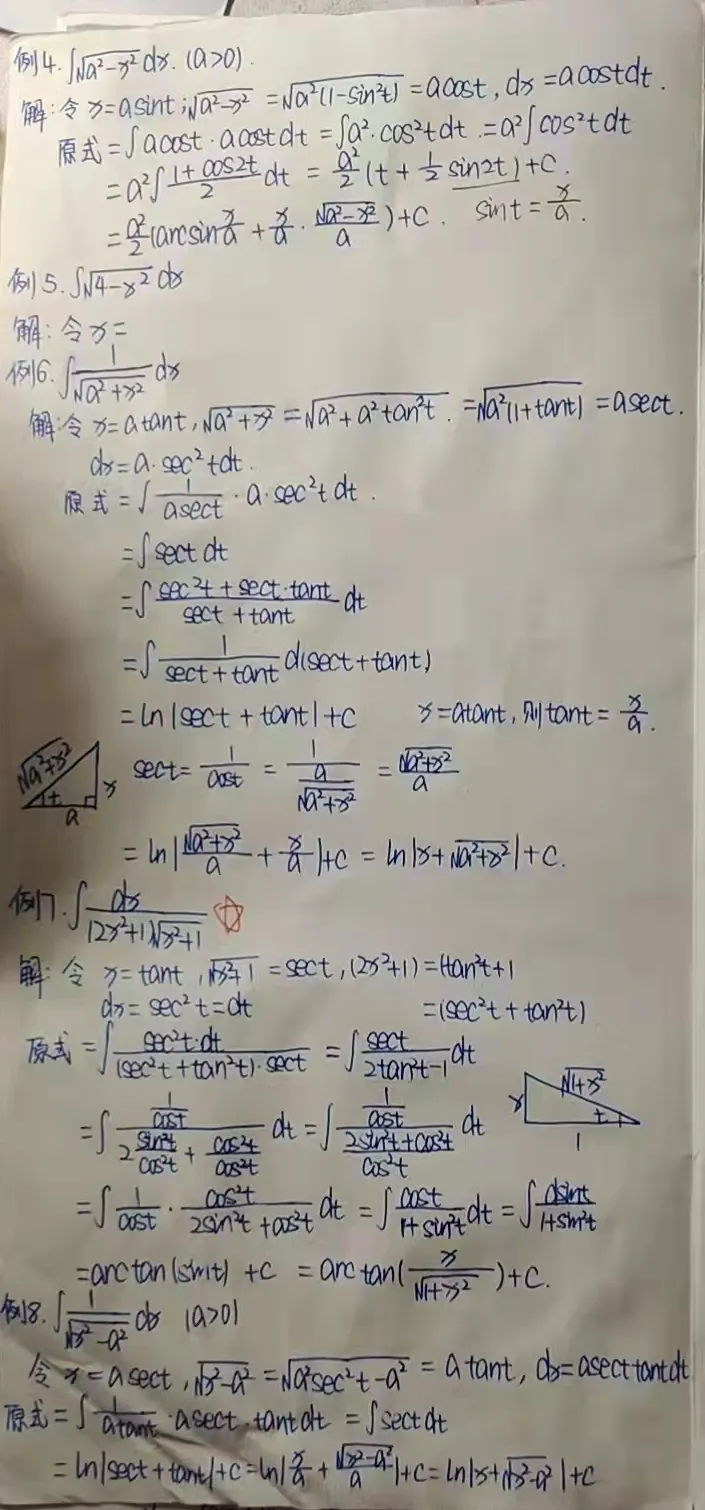 例4. ∫√(a²-x²) dx. (a>0).
解: 令 x=asint; √(a²-x²) = √(a²(1-sin²t)) = acost, dx = acostdt.
原式 = ∫acost·acostdt = ∫a²·cos²tdt = a²∫cos²tdt
= a²∫(1+cos2t)/2 dt = a²/2 (t + 1/2 sin2t) + C.
= a²/2 (arcsin x/a + x/a · √(a²-x²)/a) + C. sint = x/a.
例5. ∫√(4-x²) dx
解: 令 x=
例6. ∫1/√(a²+x²) dx
解: 令 x=atant, √(a²+x²) = √(a²+a²tan²t). = √(a²(1+tant)) = asect.
dx = a·sec²tdt.
原式 = ∫1/(asect) · a·sec²tdt.
= ∫sectdt
= ∫(sec²t + sect·tant)/(sect + tant) dt
= ∫1/(sect+tant) d(sect+tant)
= ln|sect + tant| + C x=atant, 则tant = x/a.
√(a²+x²) x t a sect = 1/cost = 1/(a/√(a²+x²)) = √(a²+x²)/a
= ln|√(a²+x²)/a + x/a| + C = ln|x+√(a²+x²)| + C.
例7. ∫dx/((2x²+1)√(x²+1)) ☆
解: 令 x=tant, √(x²+1) = sect, (2x²+1) = (tan²t+1
dx = sec²t=dt = (sec²t + tan²t)
原式 = ∫sec²t·dt/((sec²t+tan²t)·sect) = ∫sect/(2tan²t-1) dt
= ∫(1/cost)/(2 sin²t/cos²t + cos²t/cos²t) dt = ∫(1/cost)/((2sin²t+cos²t)/cos²t) dt x √(1+x²) t 1
= ∫1/cost · cos²t/(2sin²t+cos²t) dt = ∫cost/(1+sin²t) dt = ∫dsint/(1+sin²t)
= arctan(sint) + C = arctan(x/√(1+x²)) + C.
例8. ∫1/√(x²-a²) dx (a>0)
令 x=asect, √(x²-a²) = √(a²sec²t-a²) = atant, dx=asecttantdt
原式 = ∫1/(atant) · asect·tantdt = ∫sectdt
= ln|sect+tant|+C = ln|x/a + √(x²-a²)/a|+C = ln|x+√(x²-a²)|+C